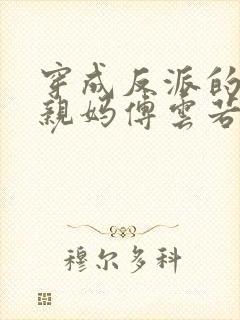 穿成反派的
親妈傅雲若
穆尔多科